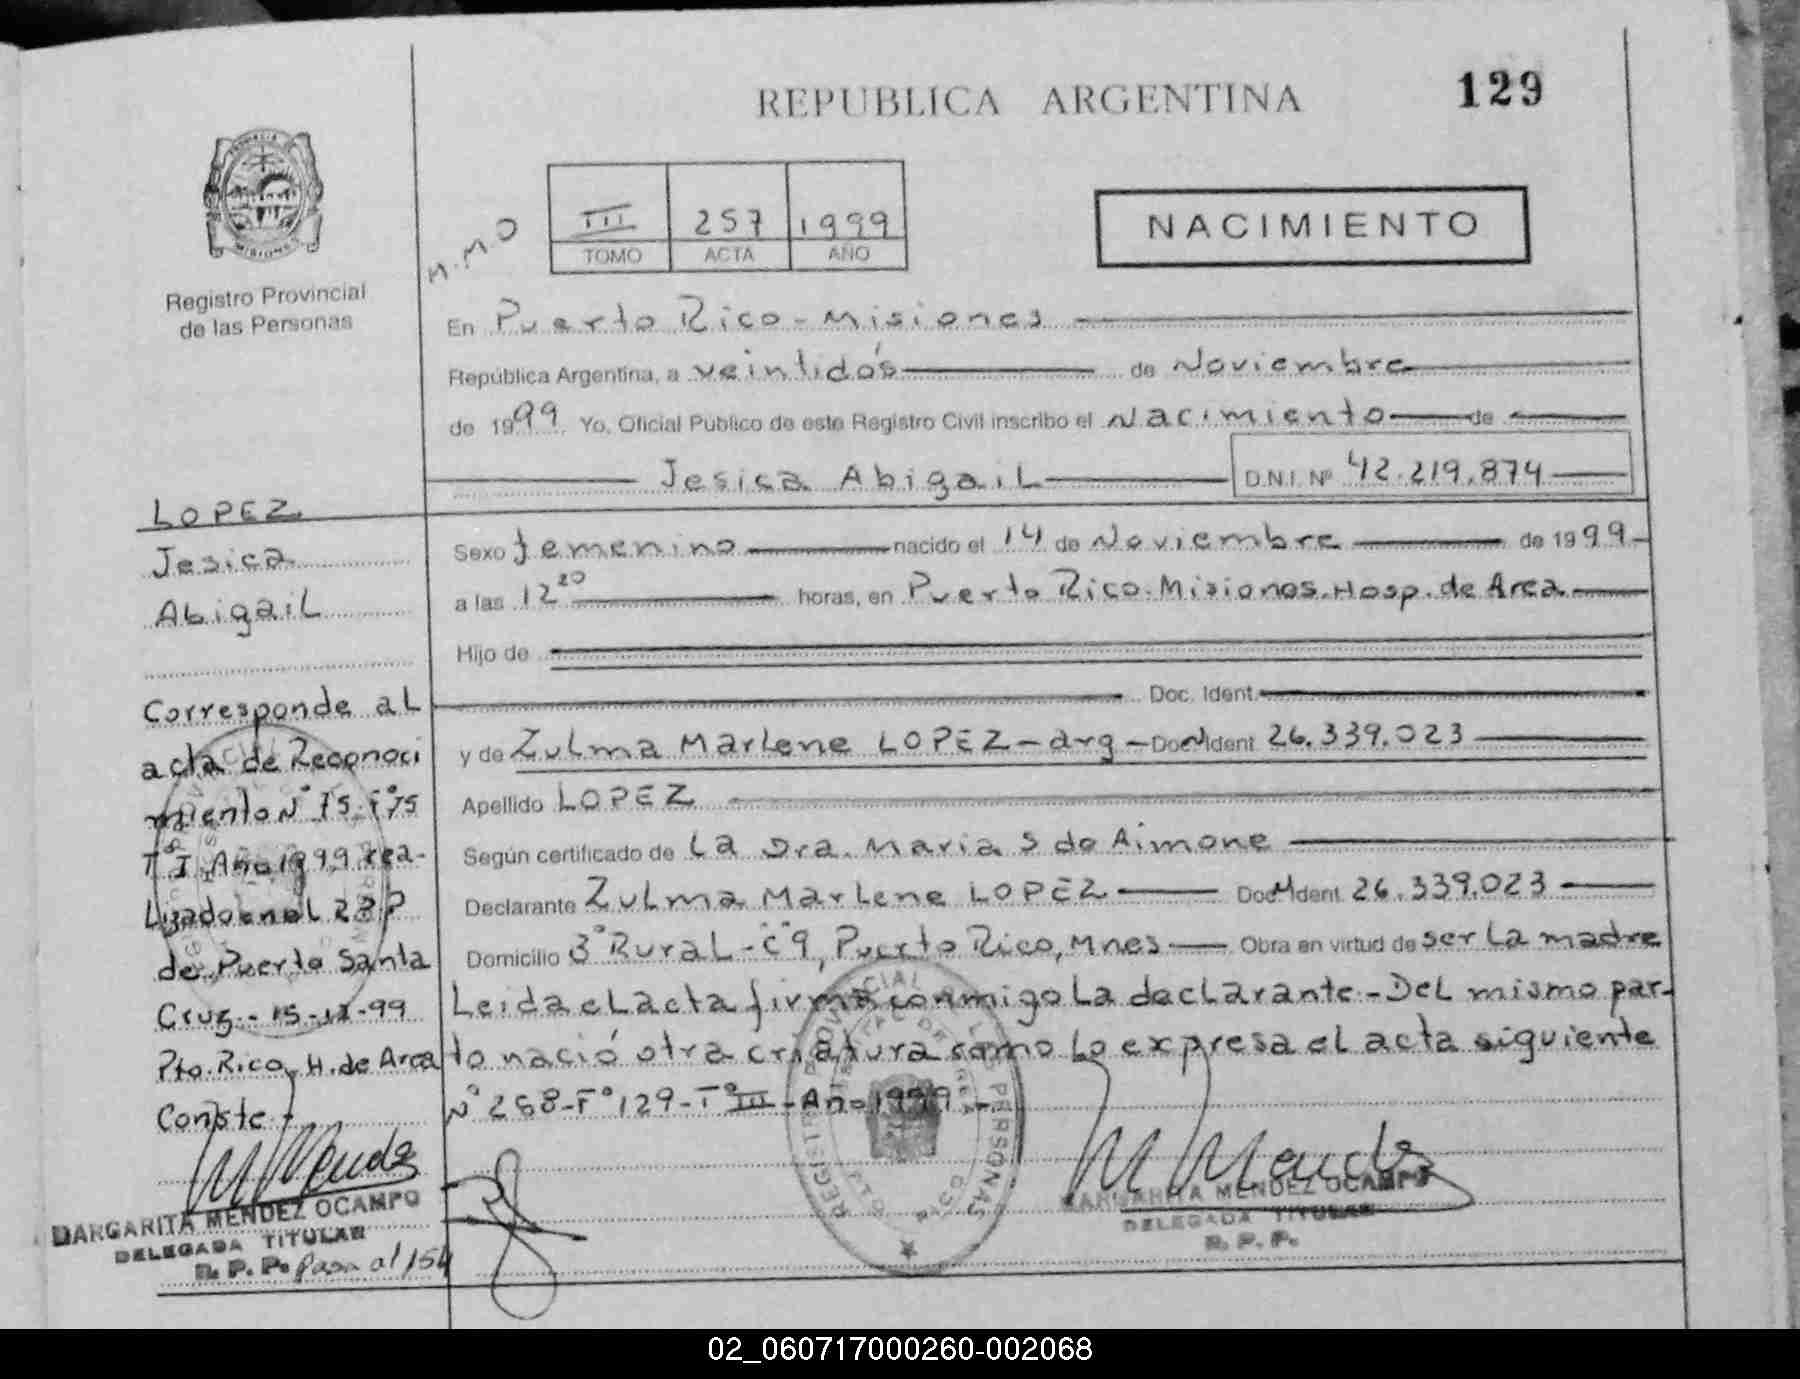 REPUBLICA ARGENTINA
129
III 257 1999
TOMO ACTA AÑO
NACIMIENTO
H.M.O
MISIONES
Registro Provincial
de las Personas
En Puerto Rico - Misiones
República Argentina, a veintidós de Noviembre
de 1999 Yo, Oficial Público de este Registro Civil inscribo el Nacimiento de
Jesica Abigail D.N.I. Nº 42.219.874
Sexo femenino nacido el 14 de Noviembre de 1999
a las 12 20 horas, en Puerto Rico. Misiones. Hosp. de Area
Hijo de
Doc. Ident.
y de Zulma Marlene LOPEZ - arg - Doc. Ident. 26.339.023
Apellido LOPEZ
Según certificado de La Dra. Maria S de Aimone
Declarante Zulma Marlene LOPEZ Doc. Ident. 26.339.023
Domicilio 3º Rural - Cº 9, Puerto Rico, Mnes Obra en virtud de ser La madre
Leida el acta firma conmigo La declarante - Del mismo par-
to nació otra criatura como lo expresa el acta siguiente
Nº 258 - Fº 129 - Tº III - Año 1999 -
LOPEZ
Jesica
Abigail
Corresponde al
acta de Reconoci
miento Nº 75 - Fº 75
Tº I Año 1999 rea-
Lizado en el RPP
de Puerto Santa
Cruz - 15-11-99
Pto. Rico, H. de Area
Conste -
MARGARITA MENDEZ OCAMPO
DELEGADA TITULAR
R. P. P. Pasa al 154
REGISTRO PROVINCIAL DE LAS PERSONAS
MARGARITA MENDEZ OCAMPO
DELEGADA TITULAR
R. P. P.
02_060717000260-002068